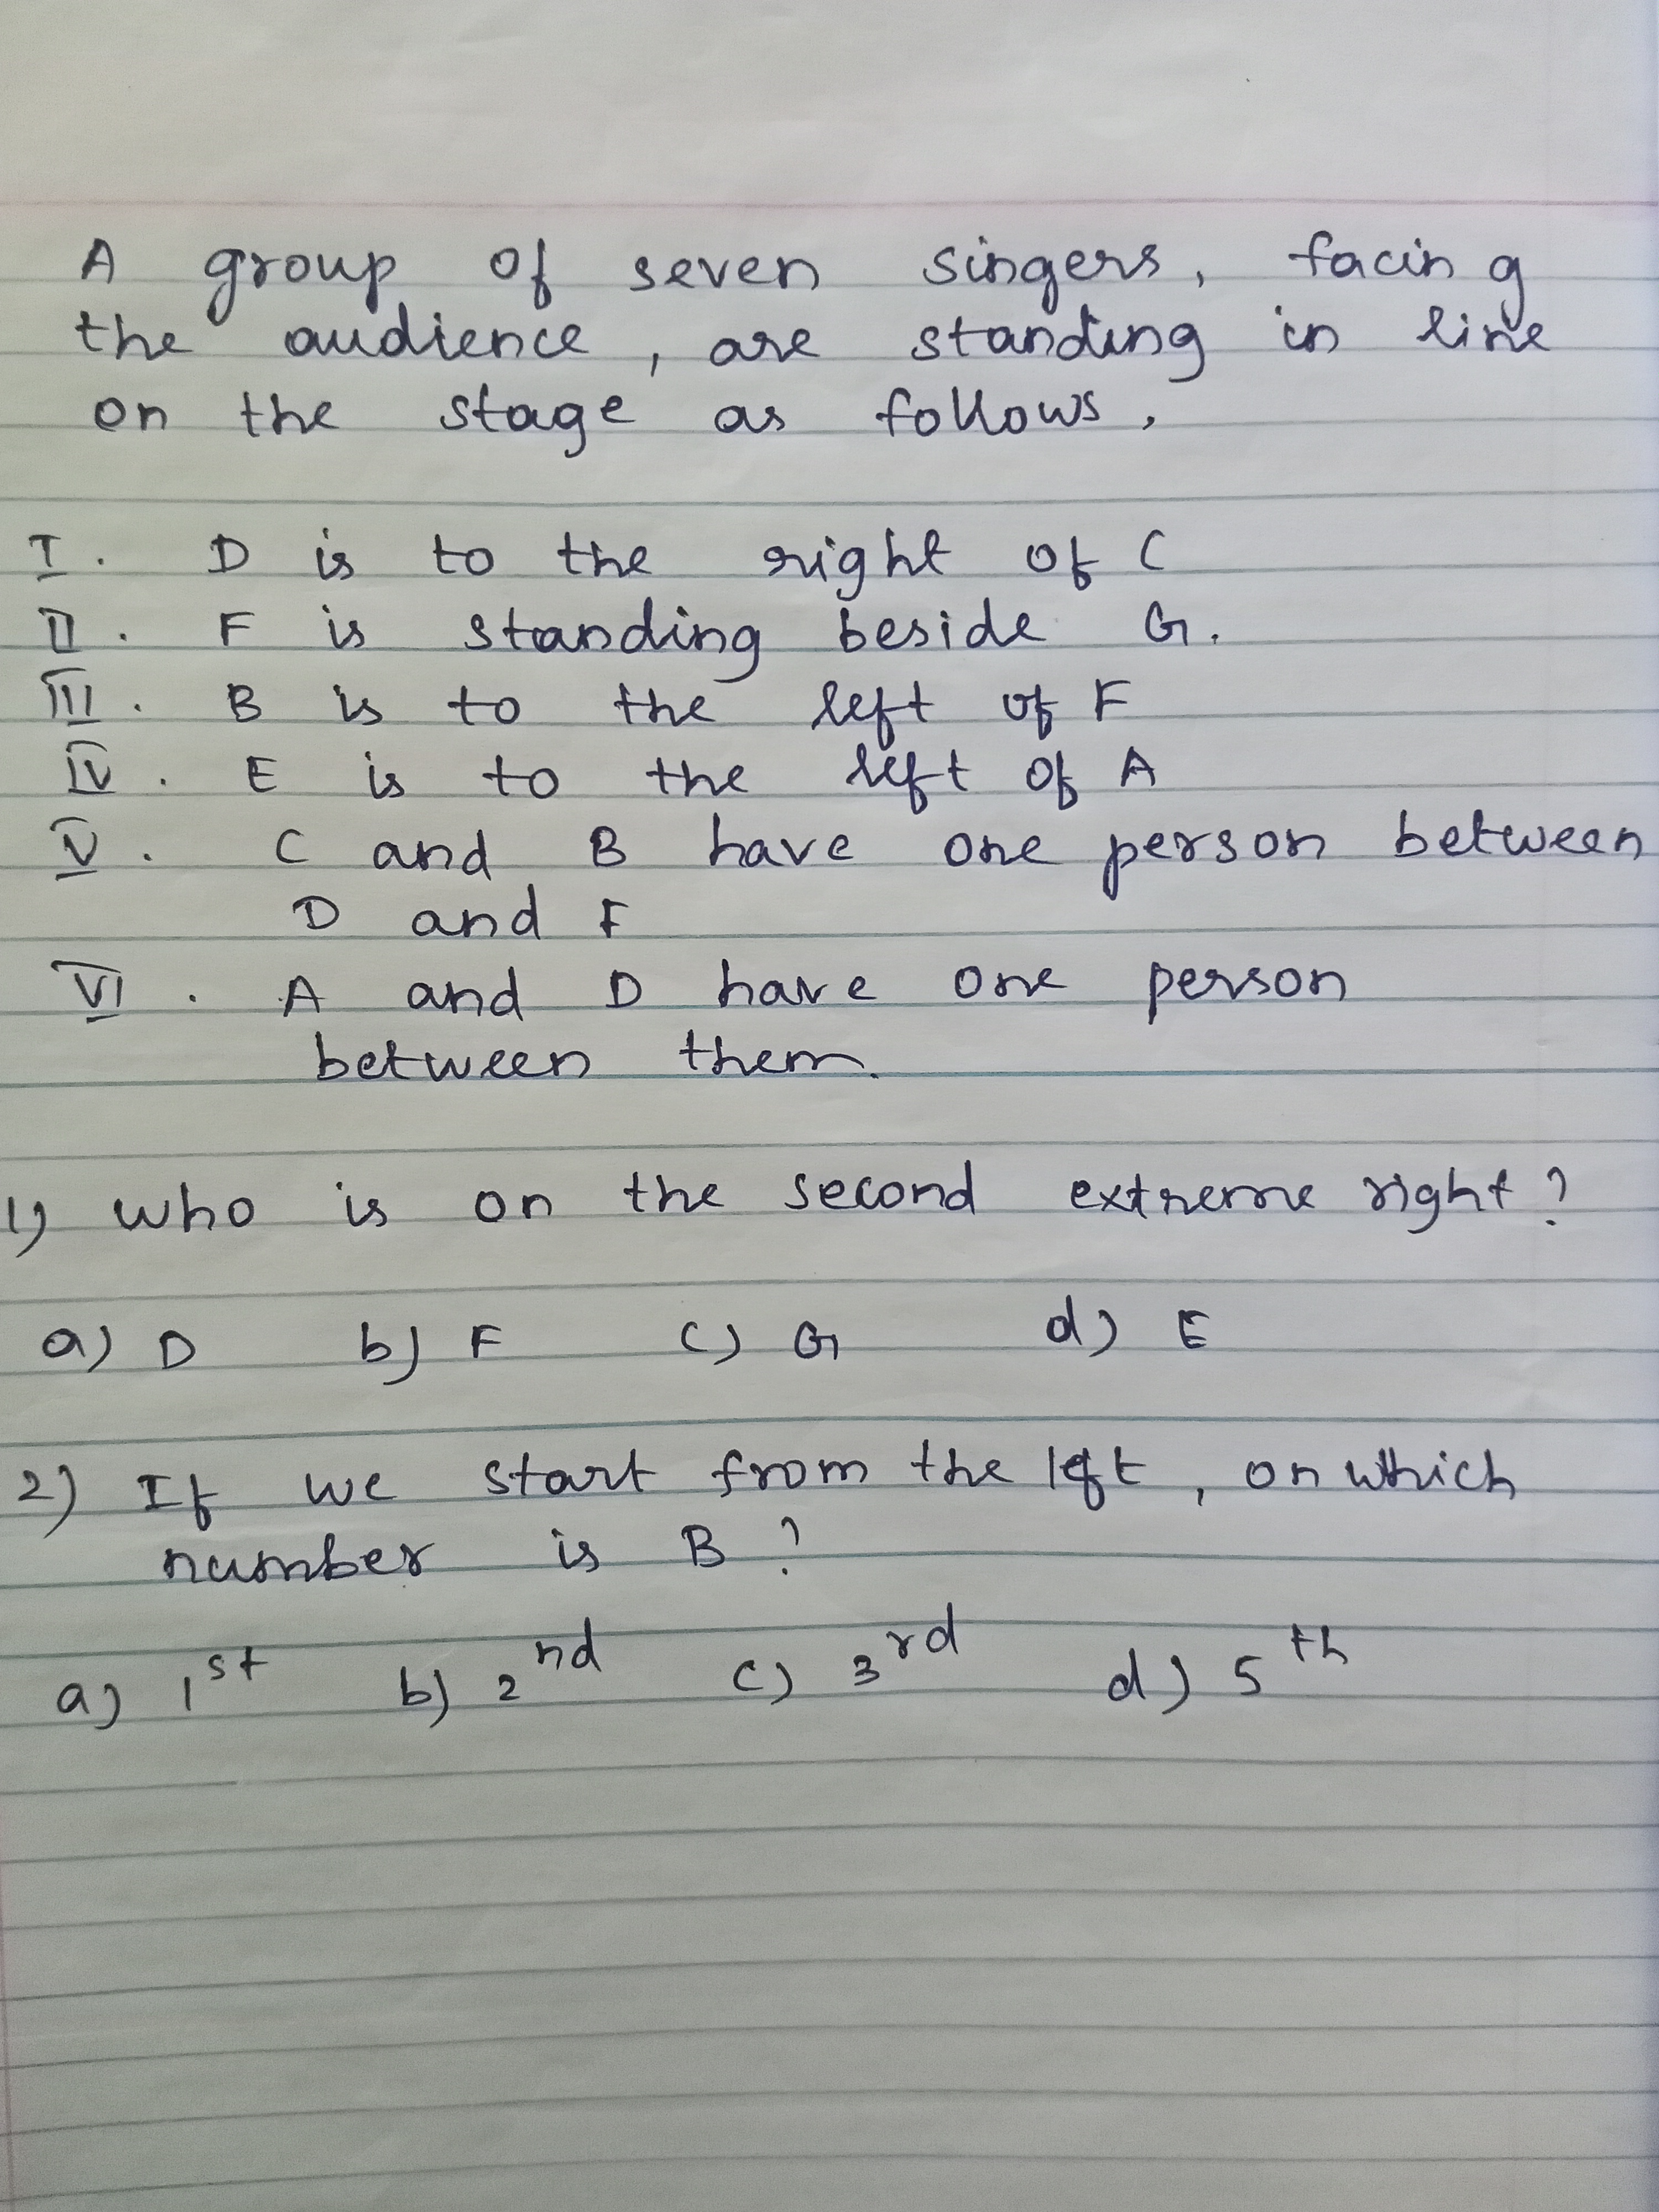 A group of seven singers, facing
the audience, are standing in line
on the stage as follows,
I. D is to the right of C
II. F is standing beside G.
III. B is to the left of F
IV. E is to the left of A
V. C and B have one person between
D and F
VI. A and D have one person
between them.
1) who is on the second extreme right?
a) D b) F c) G d) E
2) If we start from the left, on which
number is B?
a) 1st b) 2nd c) 3rd d) 5th